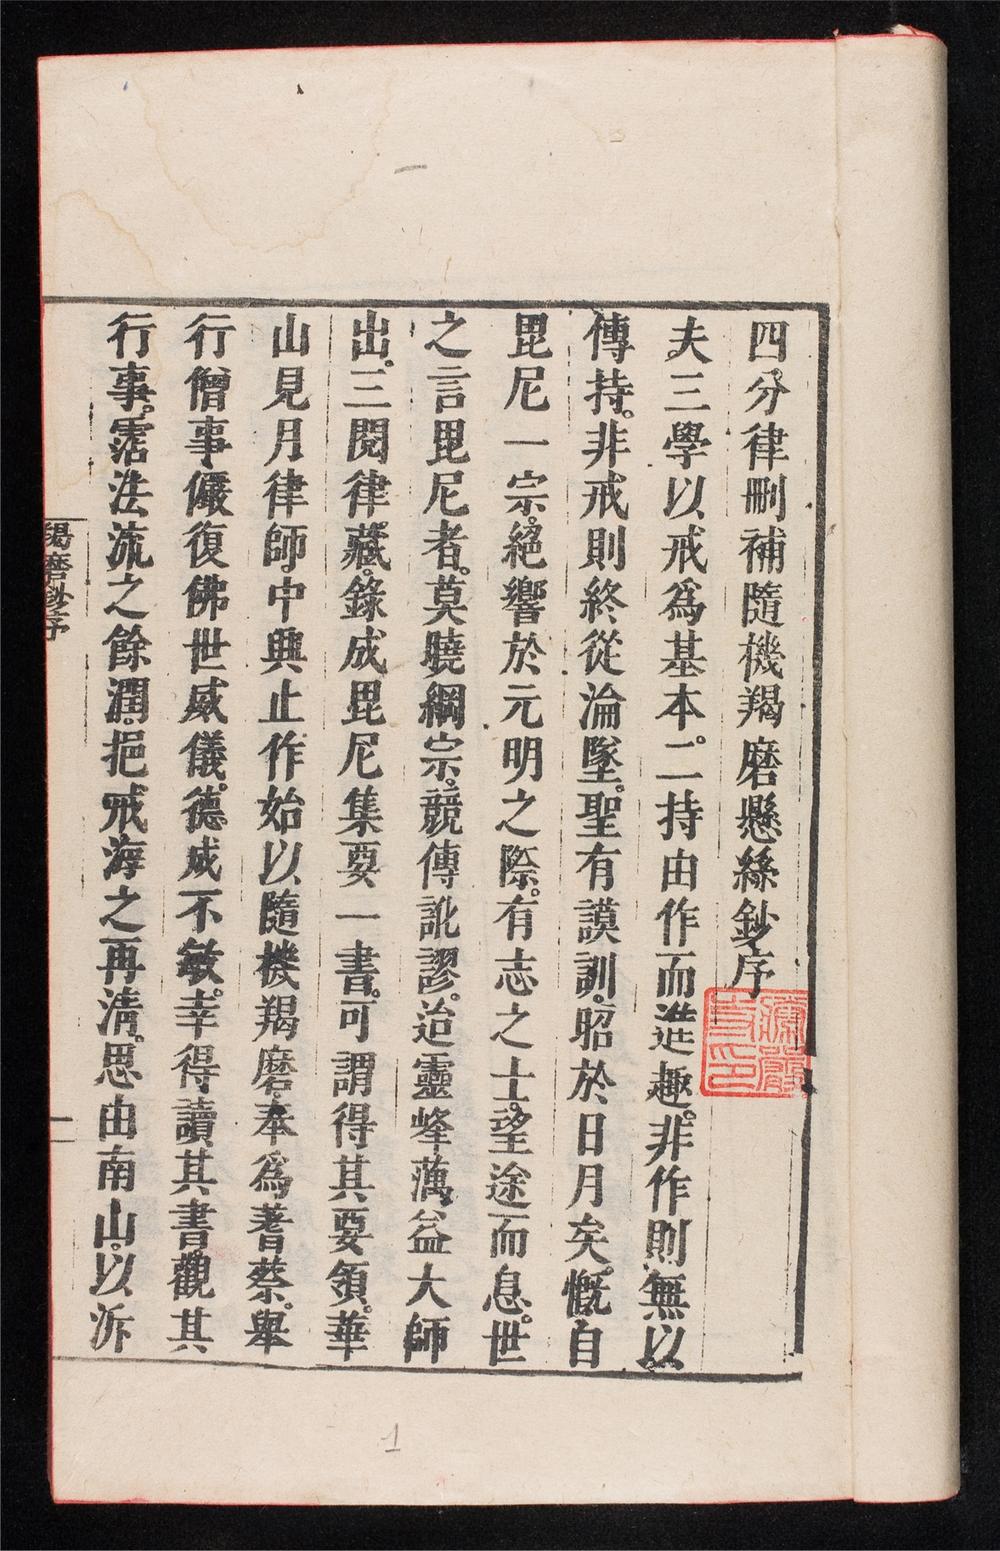 四分律刪補隨機羯磨懸絲鈔序
夫三學以戒爲基本。二持由作而進趣。非作則無以
傳持。非戒則終從淪墜。聖有謨訓。昭於日月矣。慨自
毘尼一宗。絕響於元明之際。有志之士。望途而息。世
之言毘尼者。莫曉綱宗。競傳訛謬。迨靈峰蕅益大師
出。三閱律藏。錄成毘尼集要一書。可謂得其要領。華
山見月律師。中興止作。始以隨機羯磨。奉爲蓍蔡。舉
行僧事。儼復佛世威儀。德成不敏。幸得讀其書。觀其
行事。霑法流之餘潤。挹戒海之再清。思由南山。以泝
羯磨鈔序
一
1